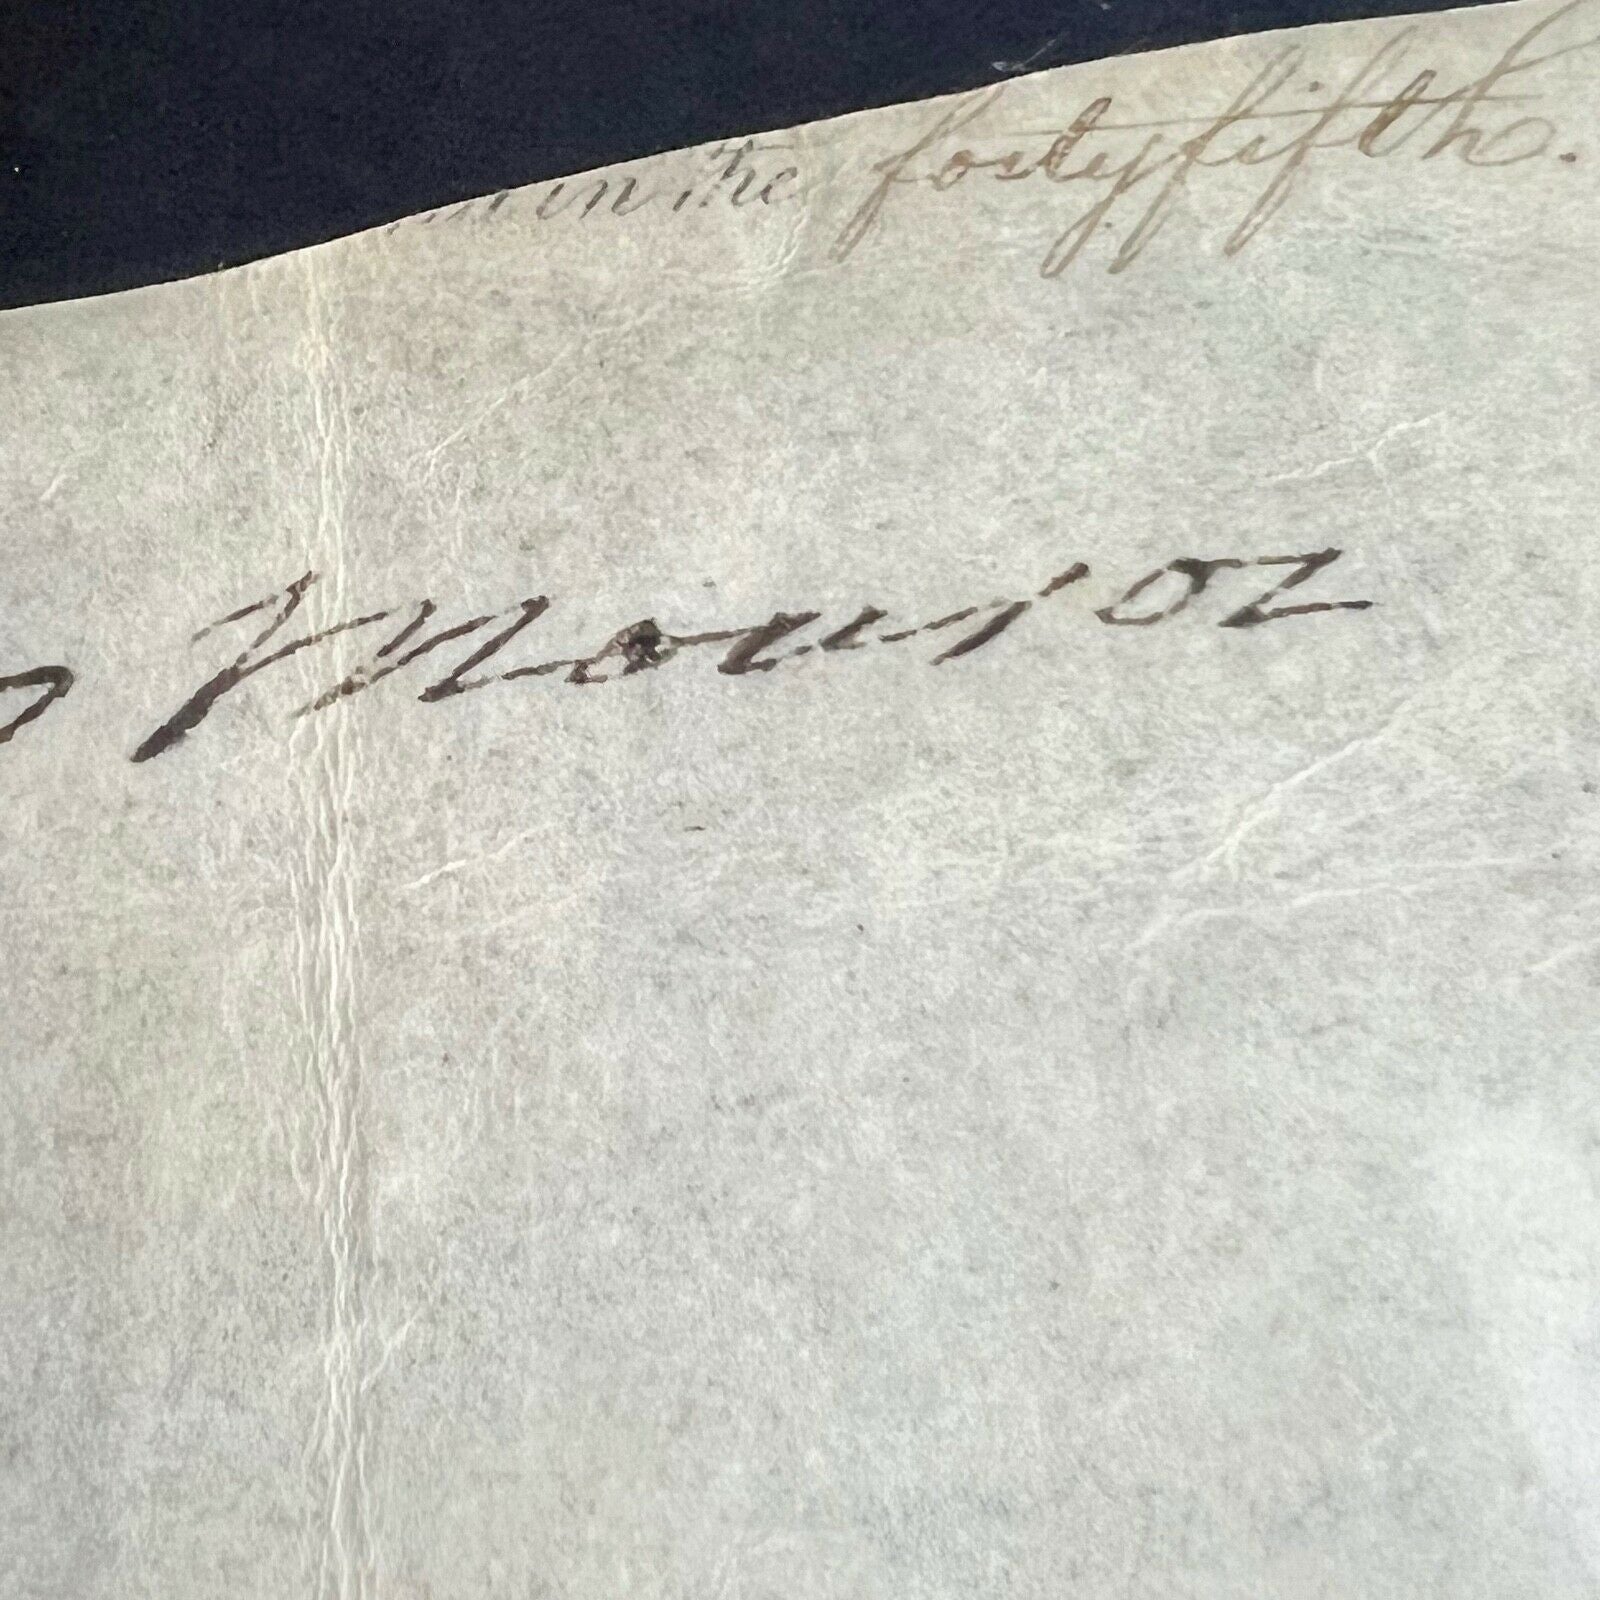 in the fortyfifth.
Monroe